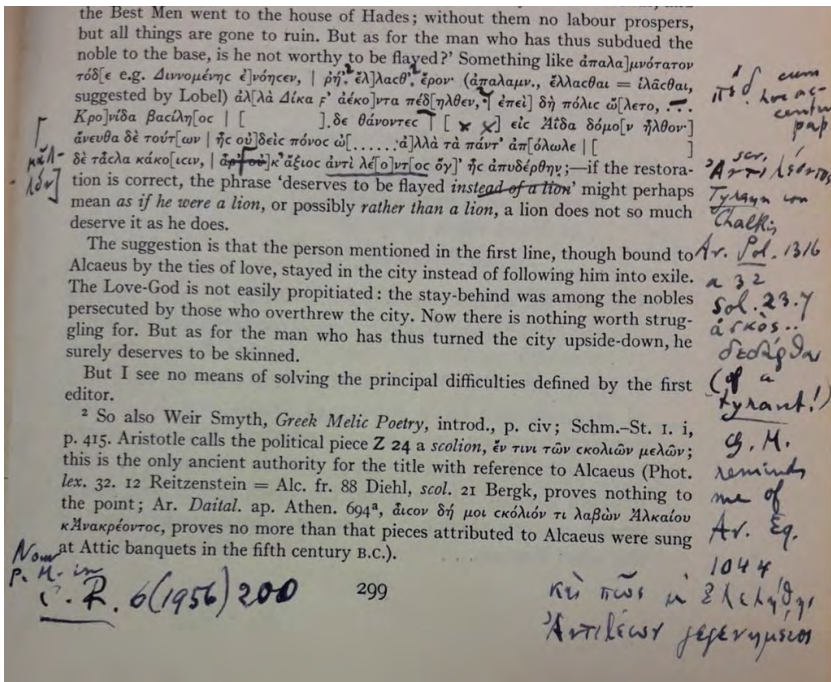 the Best Men went to the house of Hades; without them no labour prospers,
but all things are gone to ruin. But as for the man who has thus subdued the
noble to the base, is he not worthy to be flayed?’ Something like ἀπαλα]μνότατον
τόδ[ε e.g. Διννομένης ἐ]νόησεν, | ῤή. ἔλ]λαϲθ’. ἔρον· (ἀπαλαμν., ἔλλαϲθαι = ἱλᾶϲθαι,
suggested by Lobel) ἀλ[λὰ Δίκα ϝ’ ἀέκο]ντα πέδ[ηλθεν, ἐπεὶ] δὴ πόλιϲ ὤ[λετο,
Κρο]νίδα βαϲίλη[οϲ | [ ].δε θάνοντεϲ [ x x] εἰϲ Ἀΐδα δόμο[ν ἦλθον·]
ἄνευθα δὲ τούτ[ων | ἦϲ οὐ]δεὶϲ πόνοϲ ὠ[......·ἀ]λλὰ τὰ πάντ’ ἀπ[όλωλε | [ ]
δὲ τᾶϲλα κάκο[ιϲιν, | ἆρ’ οὐ]κ’ ἄξιοϲ ἀντὶ λέ[ο]ντ[οϲ ὄγ]’ ἦϲ ἀπυδέρθην;—if the restora-
tion is correct, the phrase ‘deserves to be flayed instead of a lion’ might perhaps
mean as if he were a lion, or possibly rather than a lion, a lion does not so much
deserve it as he does.
The suggestion is that the person mentioned in the first line, though bound to
Alcaeus by the ties of love, stayed in the city instead of following him into exile.
The Love-God is not easily propitiated: the stay-behind was among the nobles
persecuted by those who overthrew the city. Now there is nothing worth strug-
gling for. But as for the man who has thus turned the city upside-down, he
surely deserves to be skinned.
But I see no means of solving the principal difficulties defined by the first
editor.
² So also Weir Smyth, Greek Melic Poetry, introd., p. civ; Schm.–St. I. i,
p. 415. Aristotle calls the political piece Z 24 a scolion, ἔν τινι τῶν ϲκολιῶν μελῶν;
this is the only ancient authority for the title with reference to Alcaeus (Phot.
lex. 32. 12 Reitzenstein = Alc. fr. 88 Diehl, scol. 21 Bergk, proves nothing to
the point; Ar. Daital. ap. Athen. 694ᵃ, ἄιϲον δή μοι ϲκόλιόν τι λαβὼν Ἀλκαίου
κἈνακρέοντοϲ, proves no more than that pieces attributed to Alcaeus were sung
at Attic banquets in the fifth century B.C.).
299
μᾶλ-
λον]
cum
hoc ac-
centu
pap
scr.
Ἀντιλέοντος
Tyrann von
Chalkis
Ar. Pol. 1316
a 32
Sol. 23.7
ἀσκὸς..
δεδάρθαι
(of a
tyrant!)
G. M.
reminds
me of
Ar. Eq.
1044
καὶ πῶς μ’ ἐλελήθης
Ἀντιλέων γεγενημένος
Now
P. M. in
C. R. 6(1956) 200